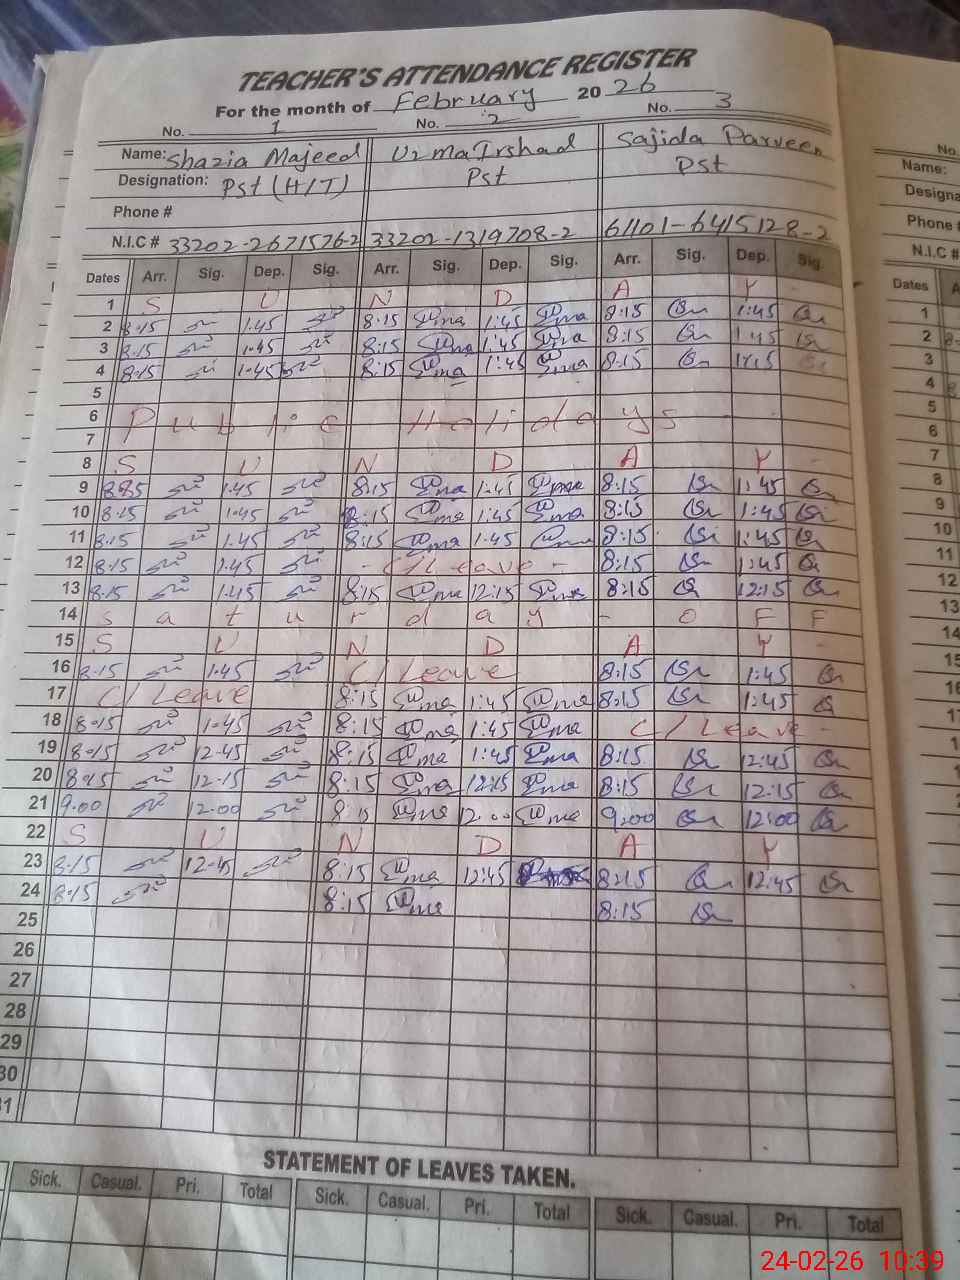 TEACHER'S ATTENDANCE REGISTER
For the month of February 20 26
No. 1 No. 2 No. 3
Name: Shazia Majeed Uzma Irshad Sajida Parveen
Designation: Pst (H/T) Pst Pst
Phone #
N.I.C # 33202-2671576-2 33202-1319708-2 61101-6415128-2
Dates Arr. Sig. Dep. Sig. Arr. Sig. Dep. Sig. Arr. Sig. Dep. Sig.
1 S U N D A Y -
2 8:15 1:45 8:15 Uzma 1:45 Uzma 8:15 1:45
3 8:15 1:45 8:15 Uzma 1:45 Uzma 8:15 1:45
4 8:15 1:45 8:15 Uzma 1:45 Uzma 8:15 1:45
5
6 Public Holidays - -
7
8 S U N D A Y -
9 8:15 1:45 8:15 Uzma 1:45 Uzma 8:15 1:45
10 8:15 1:45 8:15 Uzma 1:45 Uzma 8:15 1:45
11 8:15 1:45 8:15 Uzma 1:45 Uzma 8:15 1:45
12 8:15 1:45 - C/Leave - 8:15 1:45
13 8:15 1:45 8:15 Uzma 12:15 Uzma 8:15 12:15
14 S a t u r d a y - O F F
15 S U N D A Y -
16 8:15 1:45 C/Leave 8:15 1:45
17 C/Leave 8:15 Uzma 1:45 Uzma 8:15 1:45
18 8:15 1:45 8:15 Uzma 1:45 Uzma C/Leave -
19 8:15 12:45 8:15 Uzma 1:45 Uzma 8:15 12:45
20 8:15 12:15 8:15 Uzma 12:15 Uzma 8:15 12:15
21 9:00 12:00 8:15 Uzma 12:00 Uzma 9:00 12:00
22 S U N D A Y
23 8:15 12:45 8:15 Uzma 12:45 8:15 12:45
24 8:15 8:15 Uzma 8:15
25
26
27
28
29
30
31
STATEMENT OF LEAVES TAKEN.
Sick. Casual. Pri. Total Sick. Casual. Pri. Total Sick. Casual. Pri. Total
No
Name:
Designa
Phone #
N.I.C #
Dates A
1
2
3
4
5
6
7
8
9
10
11
12
13
14
15
16
24-02-26 10:39